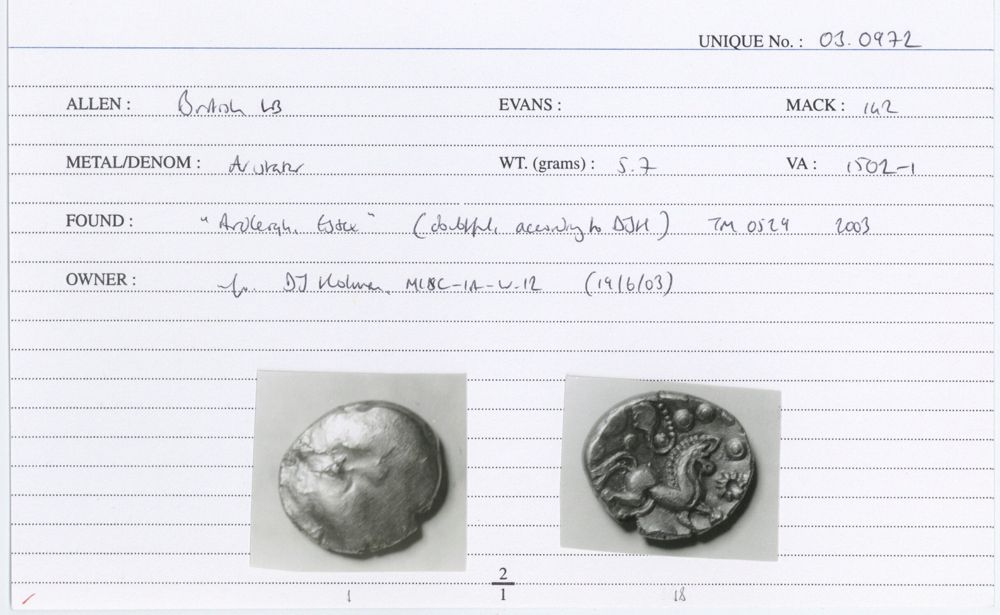 UNIQUE No. : 03.0972
ALLEN : British LB EVANS : MACK : 142
METAL/DENOM : AV stater WT. (grams) : 5.7 VA : 1502-1
FOUND : "Ardleigh, Essex" (doubtful, according to DJH) TM 0529 2003
OWNER : DJ Holman, (19/6/03)
2
1
1 18